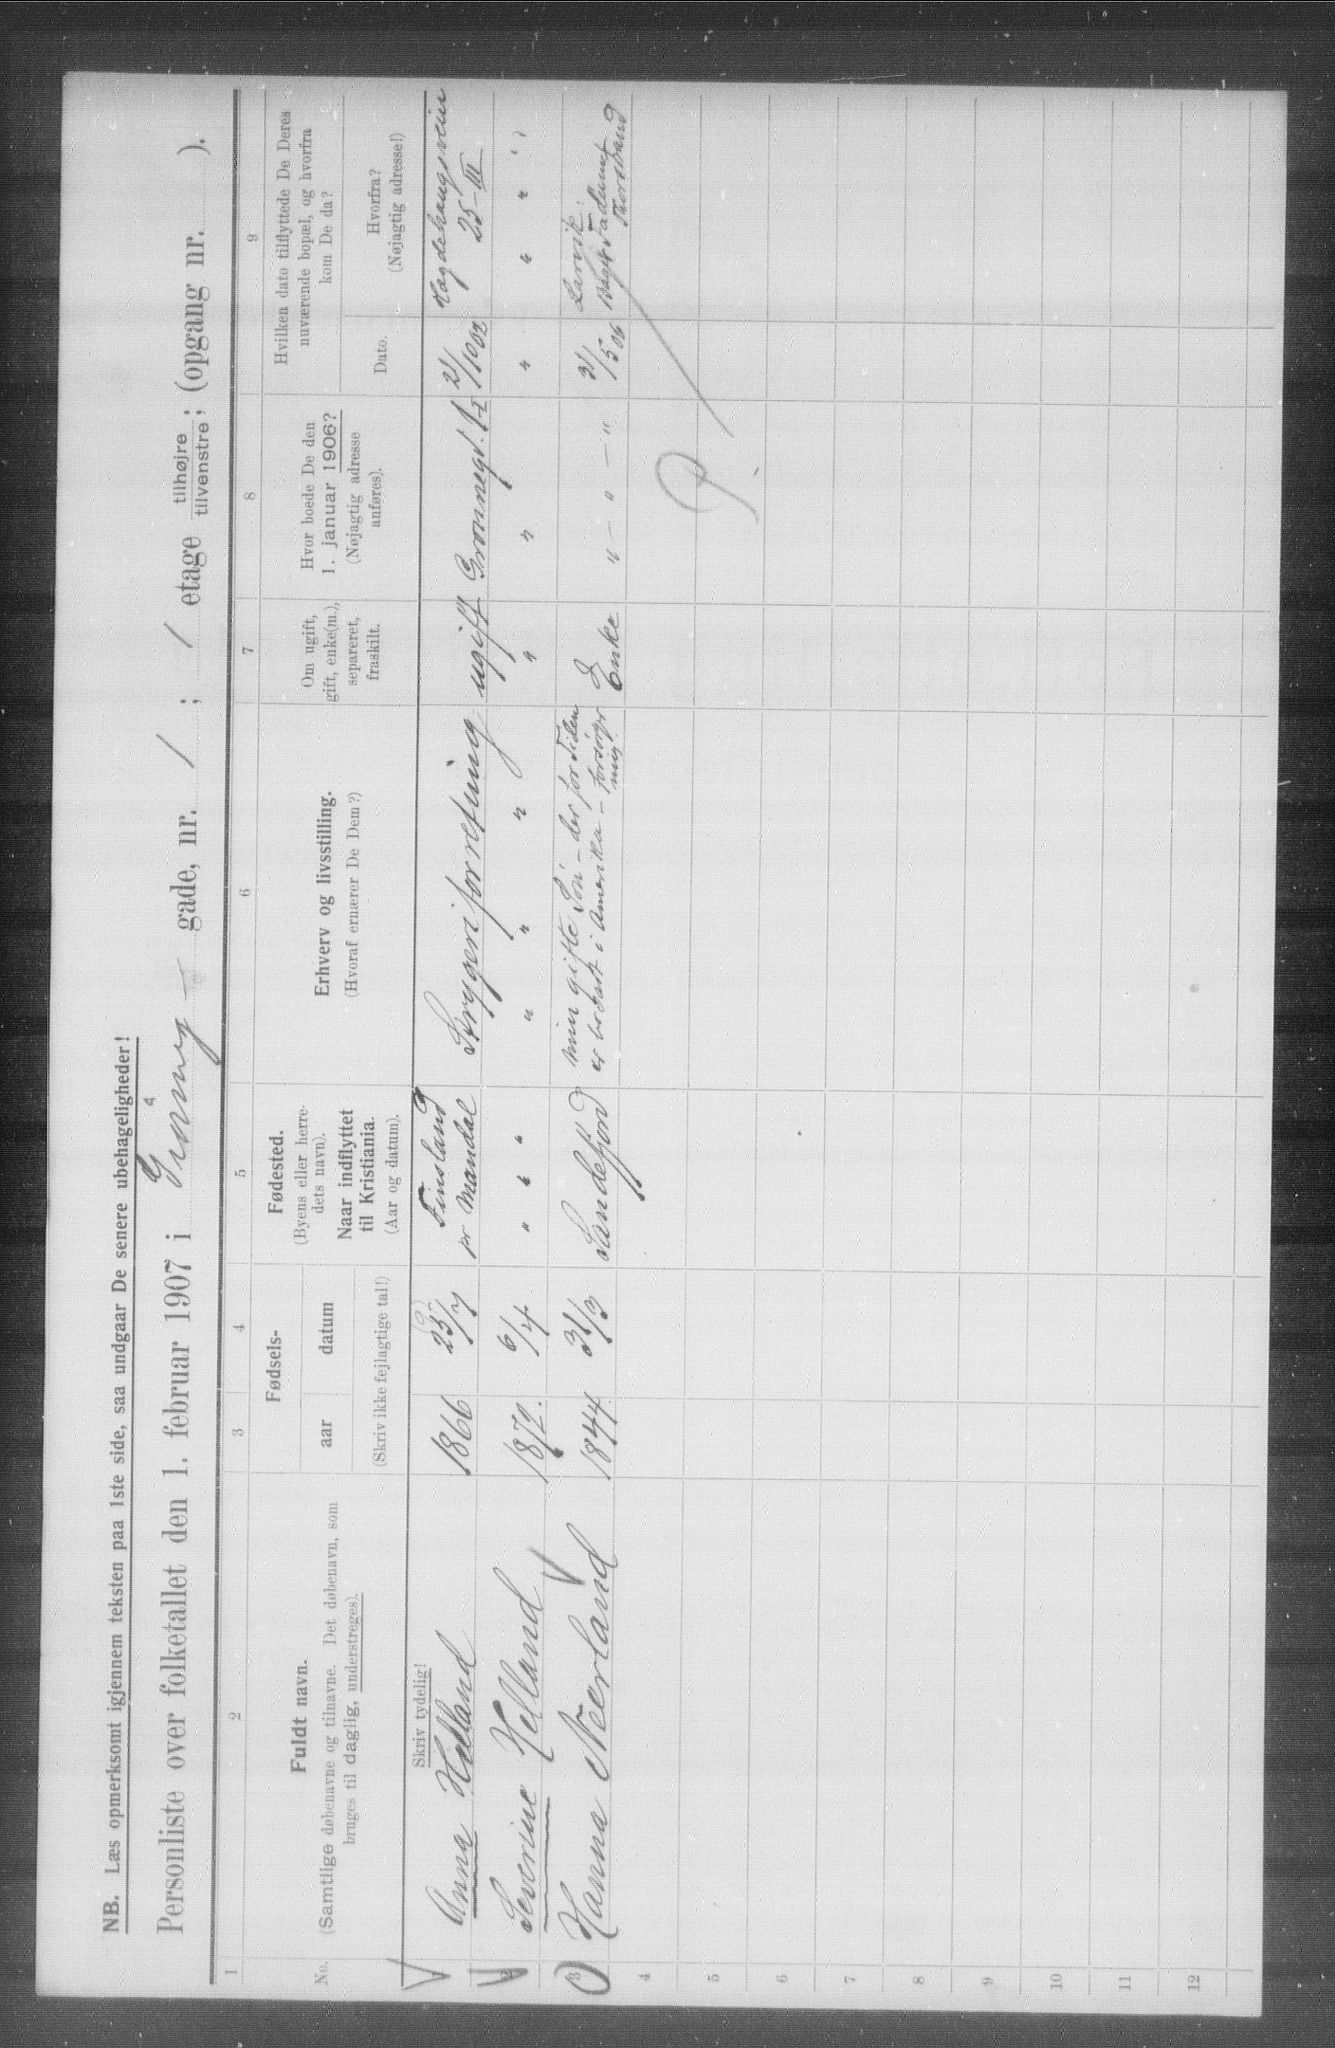 NB. Læs opmerksomt igjennem teksten paa 1ste side, saa undgaar De senere ubehageligheder!
Personliste over folketallet den 1. februar 1907 i Grønneg gade, nr. 1 ; 1 etage tilhøjre tilvenstre ; (opgang nr. ).
1 2 3 4 5 6 7 8 9
No.
Fuldt navn.
(Samtlige døbenavne og tilnavne. Det døbenavn, som
bruges til daglig, understreges).
Fødsels-
aar datum
(Skriv ikke fejlagtige tal!)
Fødested.
(Byens eller herre-
dets navn).
Naar indflyttet
til Kristiania.
(Aar og datum).
Erhverv og livsstilling.
(Hvoraf ernærer De Dem?)
Om ugift,
gift, enke(m.),
separeret,
fraskilt.
Hvor boede De den
1. januar 1906?
(Nøjagtig adresse
anføres).
Hvilken dato tilflyttede De Deres
nuværende bopæl, og hvorfra
kom De da?
Dato.
Hvorfra?
(Nøjagtig adresse!)
Skriv tydelig!
Anna Helland 1866 25/7 Finsland pr Mandal Strygeriforretning ugift Grønnegd. 1 I 2/10 02 Hægdehaugsveien 25-III
2 Severine Helland 1872. 6/4 " " " " " " " " " " " "
3 Hanna Neerland 1844 31/3 Sandefjord min gifte Søn - der for Tiden er bosat i Amerika - forsørger mig. Enke " - " - " 3/5 06 Larvik.
4
5
6
7
8
9
10
11
12